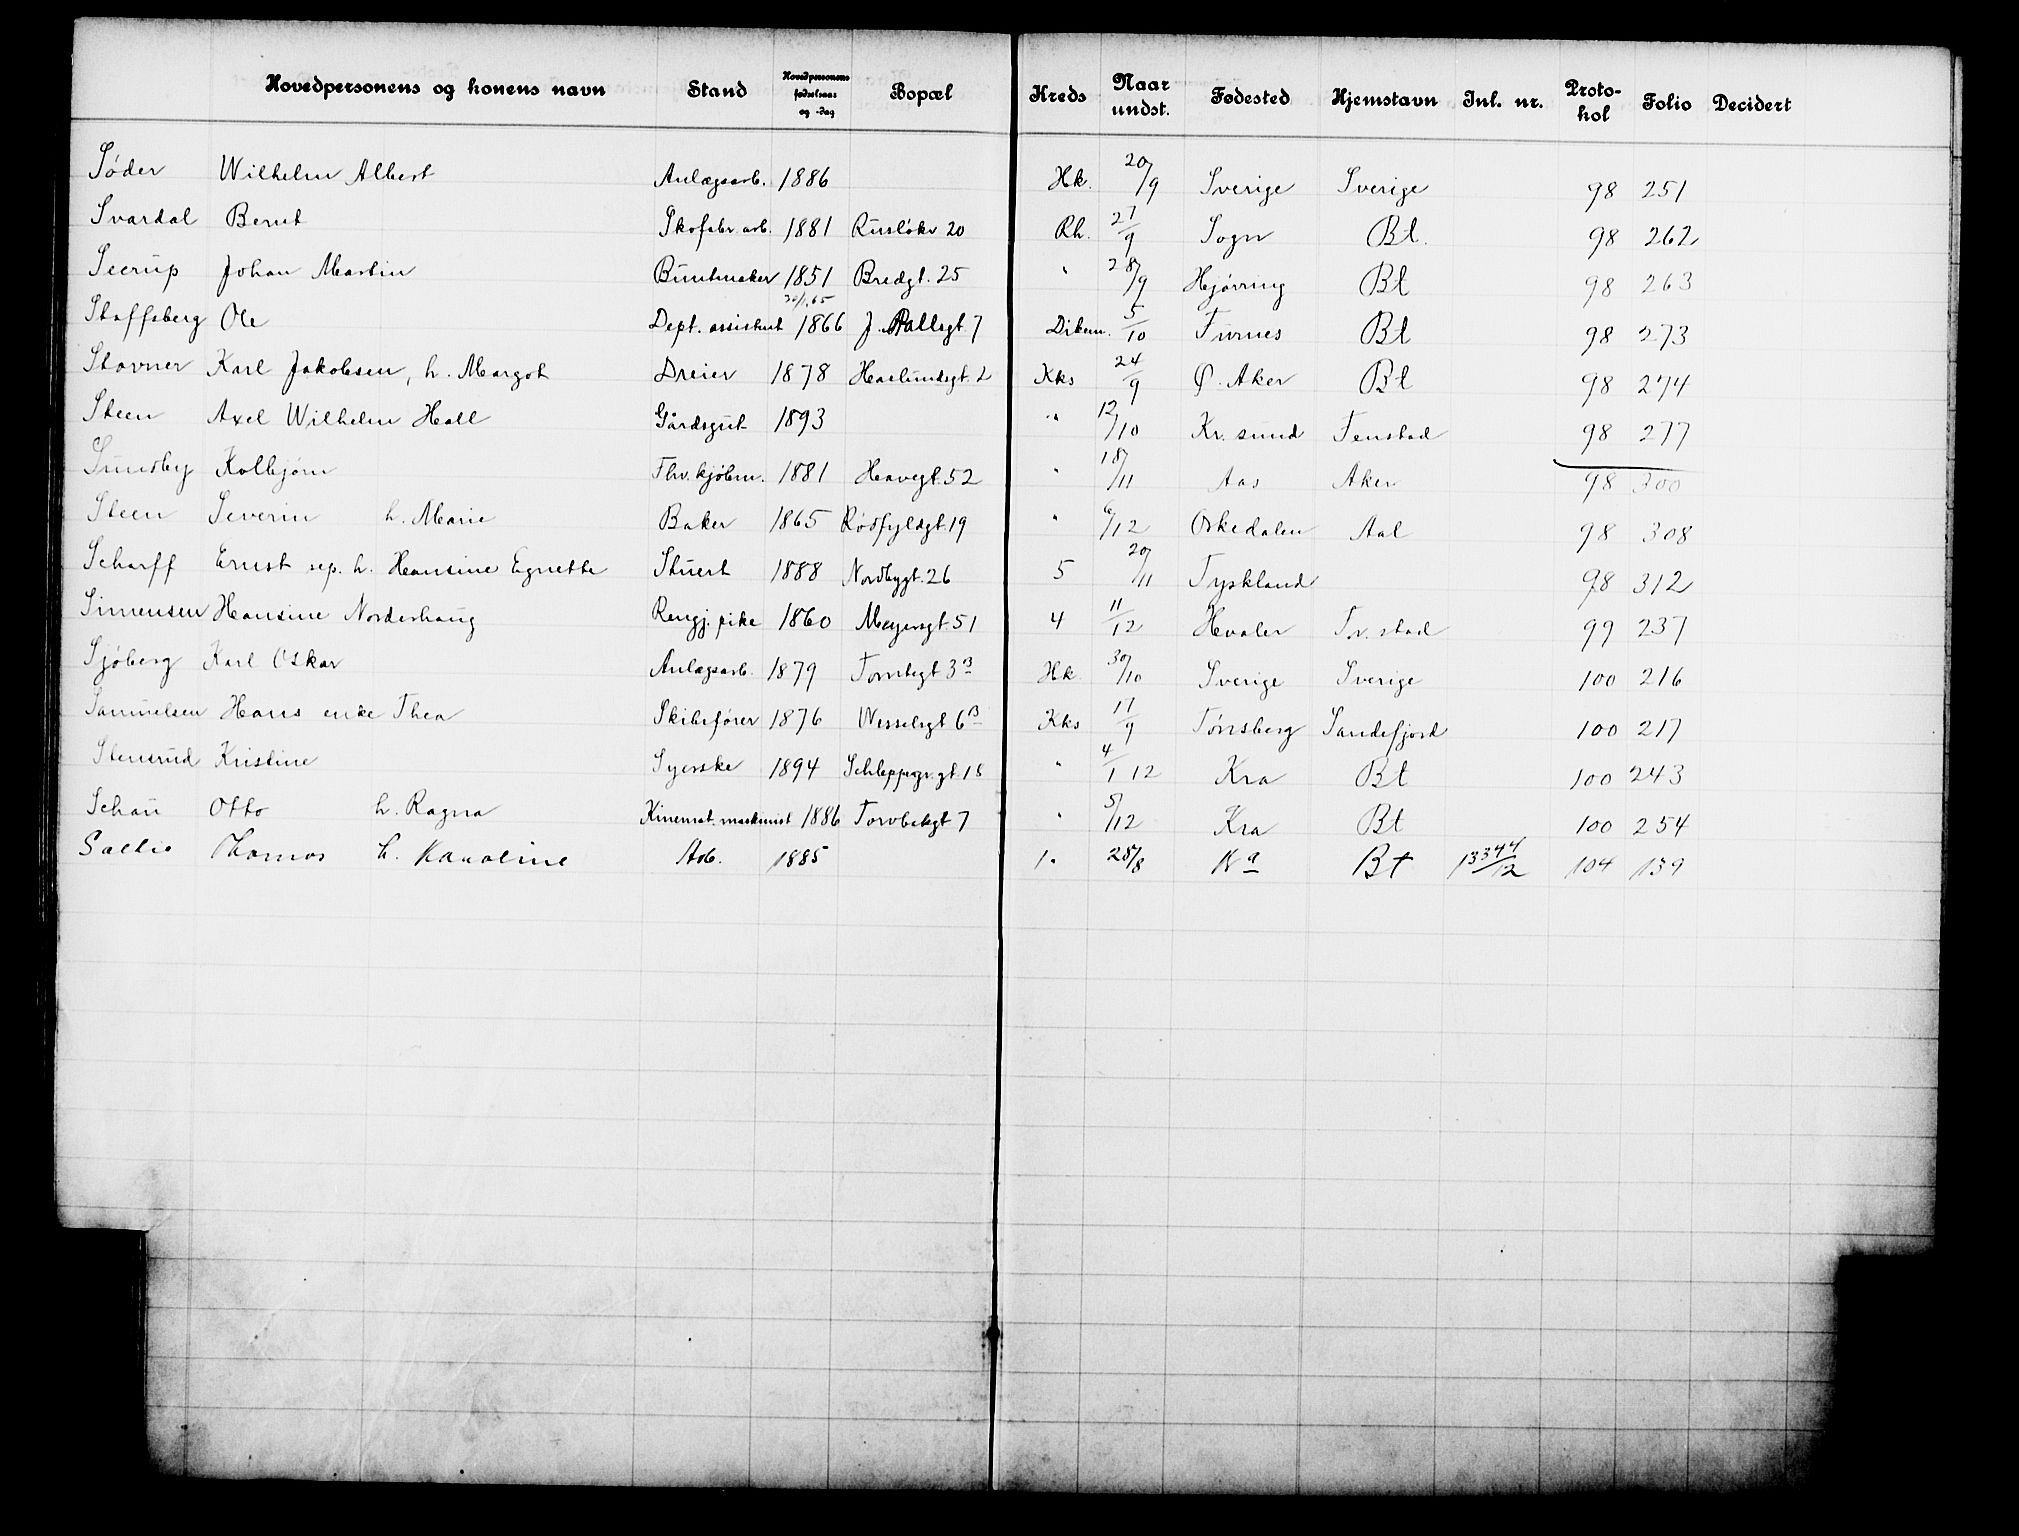 Hovedpersonens og konens navn Stand Hovedpersonens fødselsaar og -dag Bopæl Kreds Naar undst. Fødested Hjemstavn Inl. nr. Protokol Folio Decidert
Söder Wilhelm Albert Anlægsarb. 1886 Hk. 20/9 Sverige Sverige 98 251
Svardal Bernt Skofabr. arb. 1881 Rusløkv 20 Rh. 27/9 Sogn Bt. 98 262
Seerup Johan Martin Buntmaker 1851 Bredgt. 25 " 28/9 Hjørring Bt 98 263
Staffsberg Ole Dept. assistent 1866 J. Pallsgt. 7 Dikem. 5/10 Furnes Bt 98 273
Stovner Karl Jakobsen, h. Margot Dreier 1878 Haslundsgt. 2 Kks 24/9 Ø. Aker Bt 98 274
Steen Axel Wilhelm Hall Gårdsgut 1893 " 12/10 Kr. sund Fenstad 98 277
Sundby Kolbjørn Fhv. kjøbm. 1881 Havegt. 52 " 18/11 Aas Aker 98 300
Steen Severin h. Marie Baker 1865 Rødfyldgt. 19 " 6/12 Orkedalen Aal 98 308
Scharff Ernst sep. h. Hansine Egnette Stuert 1888 Nordbygt. 26 5 20/11 Tyskland 98 312
Simensen Hansine Norderhaug Rengj. pike 1860 Meyersgt. 51 4 11/12 Hvaler Fr. stad 99 237
Sjöberg Karl Oskar Anlægsarb. 1879 Tomtegt 3 B Hk. 30/10 Sverige Sverige 100 216
Samuelsen Hans enke Thea Skibsfører 1876 Wesselsgt 6 B Kks 17/9 Tønsberg Sandefjord 100 217
Stensrud Kristine Syerske 1894 Schleppegr. gt. 15 " 4/1 12 Kra Bt 100 243
Schau Otto h. Ragna Kinemat. maskinist 1886 Torvbakgt 7 " 5/12 Kra Bt 100 254
Sætlie Thomas h. Karoline Arb. 1885 1. 28/8 Kra Bt 1334 4/12 104 139